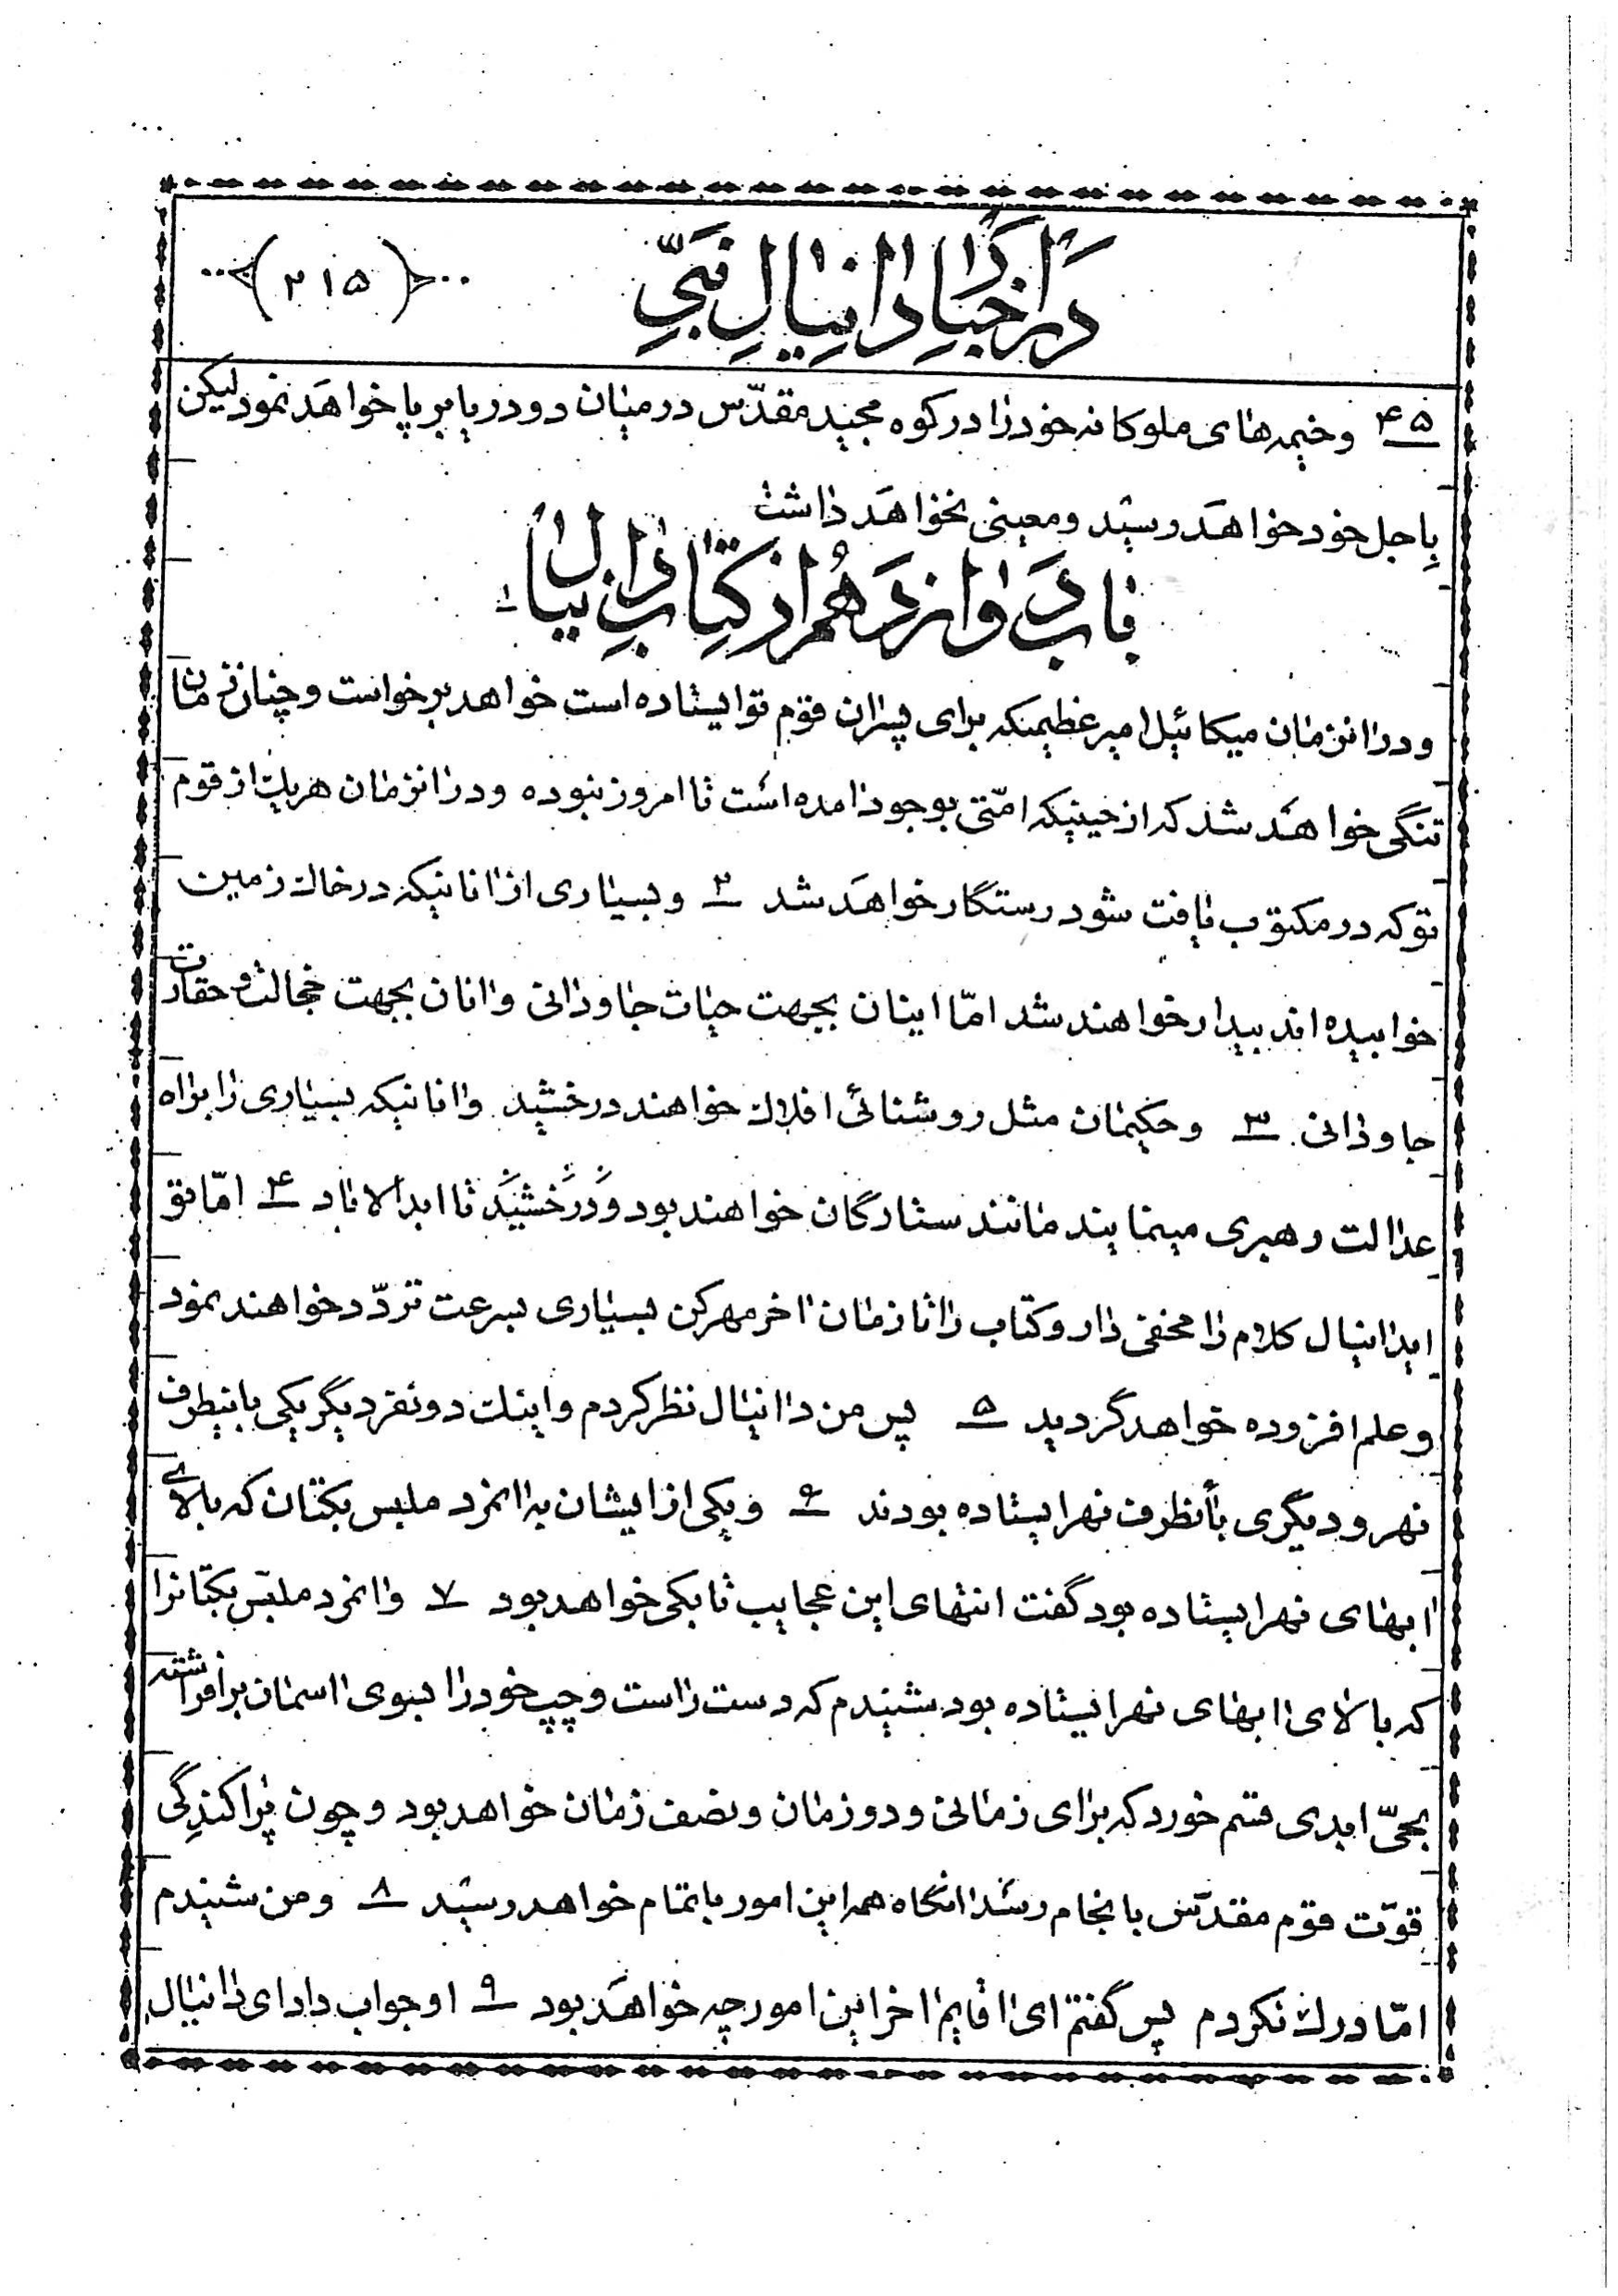 در اخبار دانیال نبی (۲۱۵)
۴۵ و خیمه‌های ملوکانه خود را در کوه مجید مقدّس در میان دو دریا بر پا خواهَد نمود لیکن
باجل خود خواهَد رسید و معینی نخواهَد داشت
باب دَوازدَهُم از کتاب دانیال ۱
و در انزمان میکائیل امیر عظیمیکه برای پسران قوم تو ایستاده است خواهد برخواست و چنان زمان
تنگی خواهَد شد که از حینیکه امّتی بوجود امده است تا امروز نبوده و در انزمان هر یک از قوم
تو که در مکتوب یافت شود رستگار خواهَد شد ۲ و بسیاری از انانیکه در خاک زمین
خوابیده اند بیدار خواهند شد امّا اینان بجهت حیات جاودانی و انان بجهت خجالت و حقارت
جاودانی ۳ و حکیمان مثل روشنائی افلاک خواهند درخشید و انانیکه بسیاری را براه
عدالت رهبری مینمایند مانند ستارگان خواهند بود وَ دَرَخشیَد تا ابد الاباد ۴ امّا تو
ایدانیال کلام را مخفی دار و کتاب را تا زمان اخر مهر کن بسیاری بسرعت تردّد خواهند نمود
و علم افزوده خواهد گردید ۵ پس من دانیال نظر کردم و اینک دو نفر دیگر یکی باینطرف
نهر و دیگری بأنطرف نهر ایستاده بودند ۶ و یکی از ایشان به انمرد ملبس بکتان که بالای
ابهای نهر ایستاده بود گفت انتهای این عجایب تا بکی خواهد بود ۷ و انمرد ملبّس بکتانرا
که بالای ابهای نهر ایستاده بود شنیدم که دست راست و چپ خود را بسوی اسمان برافراشته
بحیّ ابدی قسم خورد که برای زمانی و دو زمان و نصف زمان خواهد بود و چون پراکندِگی
قوّت قوم مقدّس بانجام رسَد انگاه همه این امور باتمام خواهد رسید ۸ و من شنیدم
امّا درک نکردم پس گفتم ای اقایم اخر این امور چه خواهَد بود ۹ او جواب داد ای دانیال